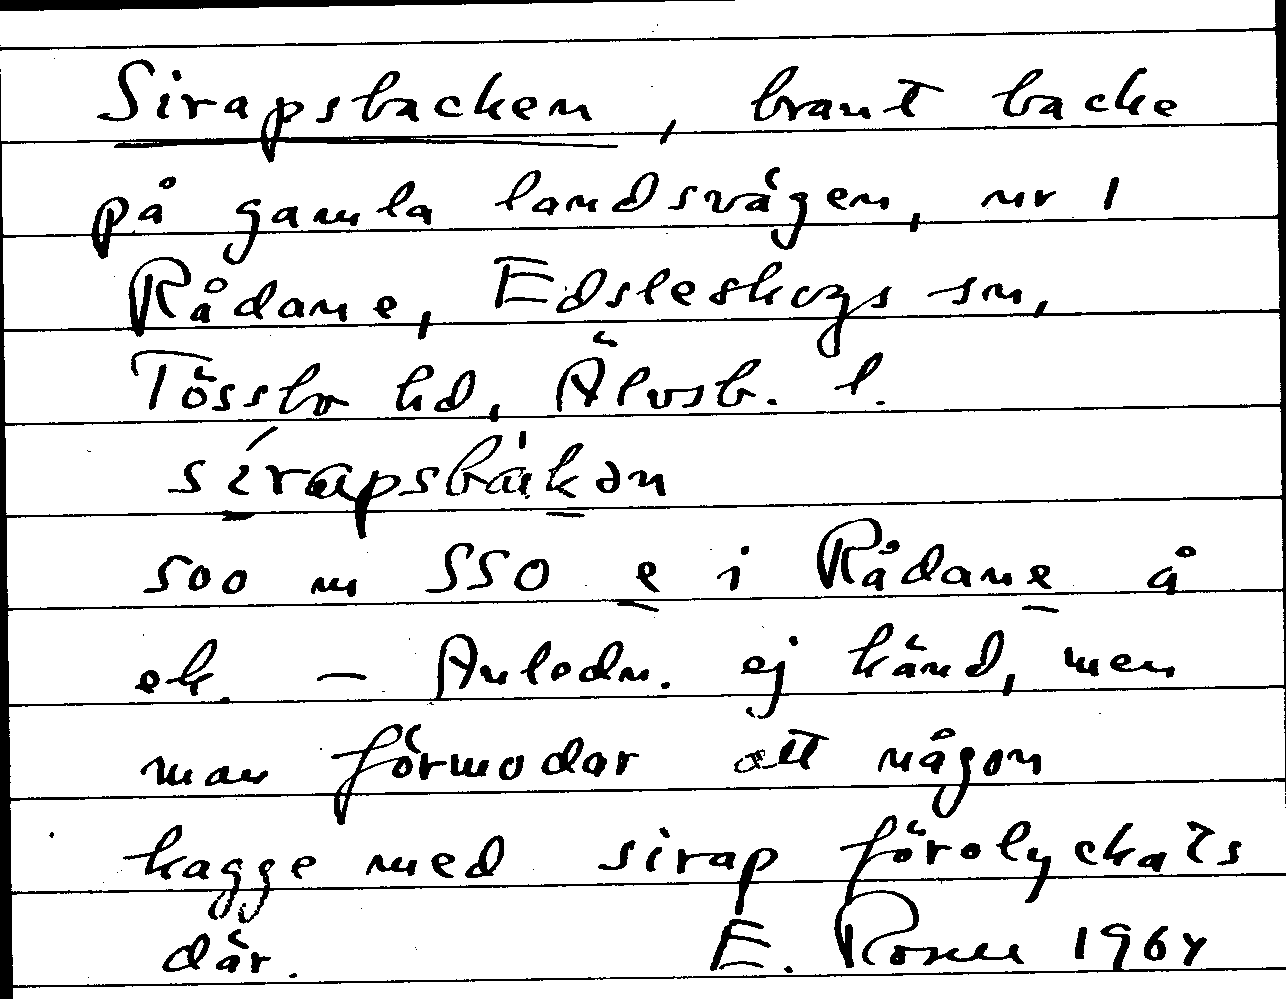 Sirapsbacken, brant backe
på gamla landsvägen, nr 1
Rådane, Edsleskogs sn,
Tössbo hd, Älvsb. l.
sírapsbàkən
500 m SSO e i Rådane å
ek. – Anledn. ej känd, men
man förmodar att någon
kagge med sirap förolyckats
där. E. Rosell 1964